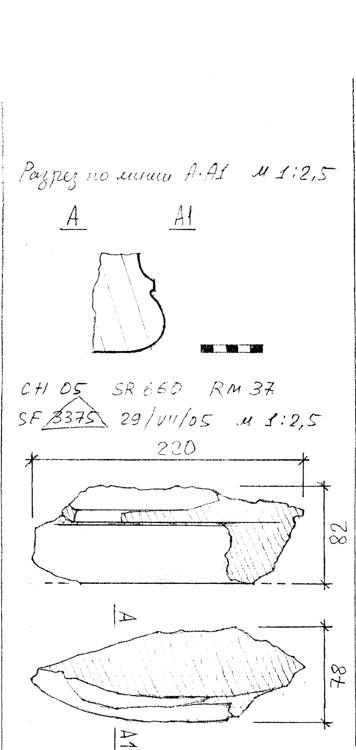 Разрез по линии А-А1 м 1:2,5
А А1
CH 05 SR 660 RM 37
SF 3375 29/VII/05 м 1:2,5
220
82
А
78
А1